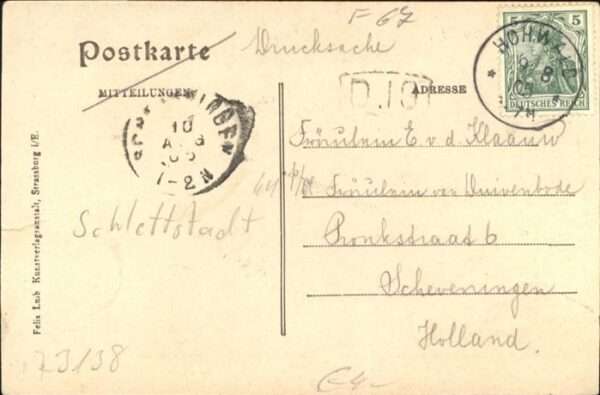 F 67
Postkarte
Drucksache
MITTEILUNGEN
ADRESSE
5 5
DEUTSCHES REICH
HOHWALD
9 8
D.10
10
1-2 N
Fräulein E v d Klaauw
Fräulein van Duivenbode
Pronkstraat 6
Scheveningen
Holland.
Schlettstadt
Felix Luib Kunstverlagsanstalt, Strassburg i/E.
23/38